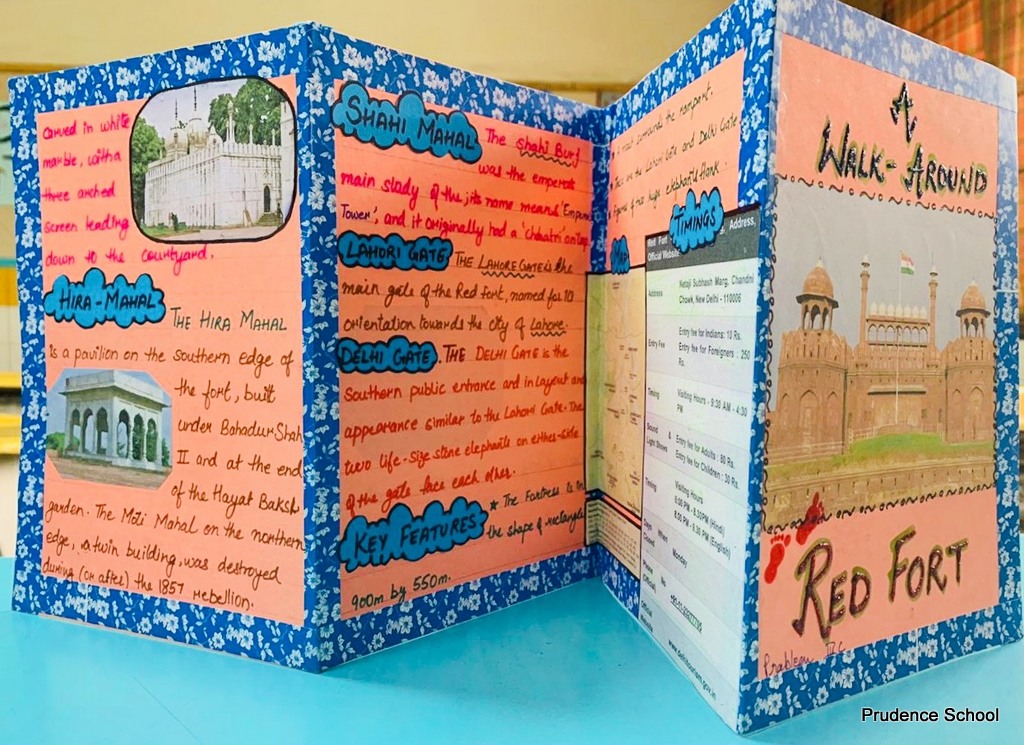 Carved in white
marble, with a
three arched
screen leading
down to the courtyard.
HIRA-MAHAL
THE HIRA MAHAL
is a pavilion on the southern edge of
the fort, built
under Bahadur Shah
II and at the end
of the Hayat Baksh
garden. The Moti Mahal on the northern
edge, a twin building, was destroyed
during (or after) the 1857 rebellion.
SHAHI MAHAL
The Shahi Burj
was the emperors
main study of the, its name means 'Emperor
Tower', and it originally had a 'chhatri' on top
LAHORI GATE
THE LAHORE GATE is the
main gate of the Red fort, named for its
orientation towards the city of Lahore.
DELHI GATE.
THE DELHI GATE is the
Southern public entrance and in layout and
appearance similar to the Lahori Gate. The
two life-size stone elephants on either side
of the gate face each other.
KEY FEATURES
* The Fortress is in
the shape of rectangle
900m by 550m.
moat surrounds the rampart.
are the Lahori Gate and Delhi Gate
Figures of two huge elephants flank
MAP
TIMINGS
Red Fort Address,
Official Website
Address
Netaji Subhash Marg, Chandni
Chowk, New Delhi - 110006
Entry Fee
Entry fee for Indians: 10 Rs.
Entry fee for Foreigners : 250
Rs.
Timing
Visiting Hours - 9:30 AM - 4:30
PM
Sound &
Light Shows
Entry fee for Adults : 80 Rs.
Entry fee for Children : 30 Rs.
Timing
Visiting Hours
6:00 PM - 8:30PM (Hindi)
8:00 PM - 9:30 PM (English)
Days When
Closed
Monday
Phone No
Official
www.delhitourism.gov.in
A
WALK-AROUND
RED FORT
Prudence School